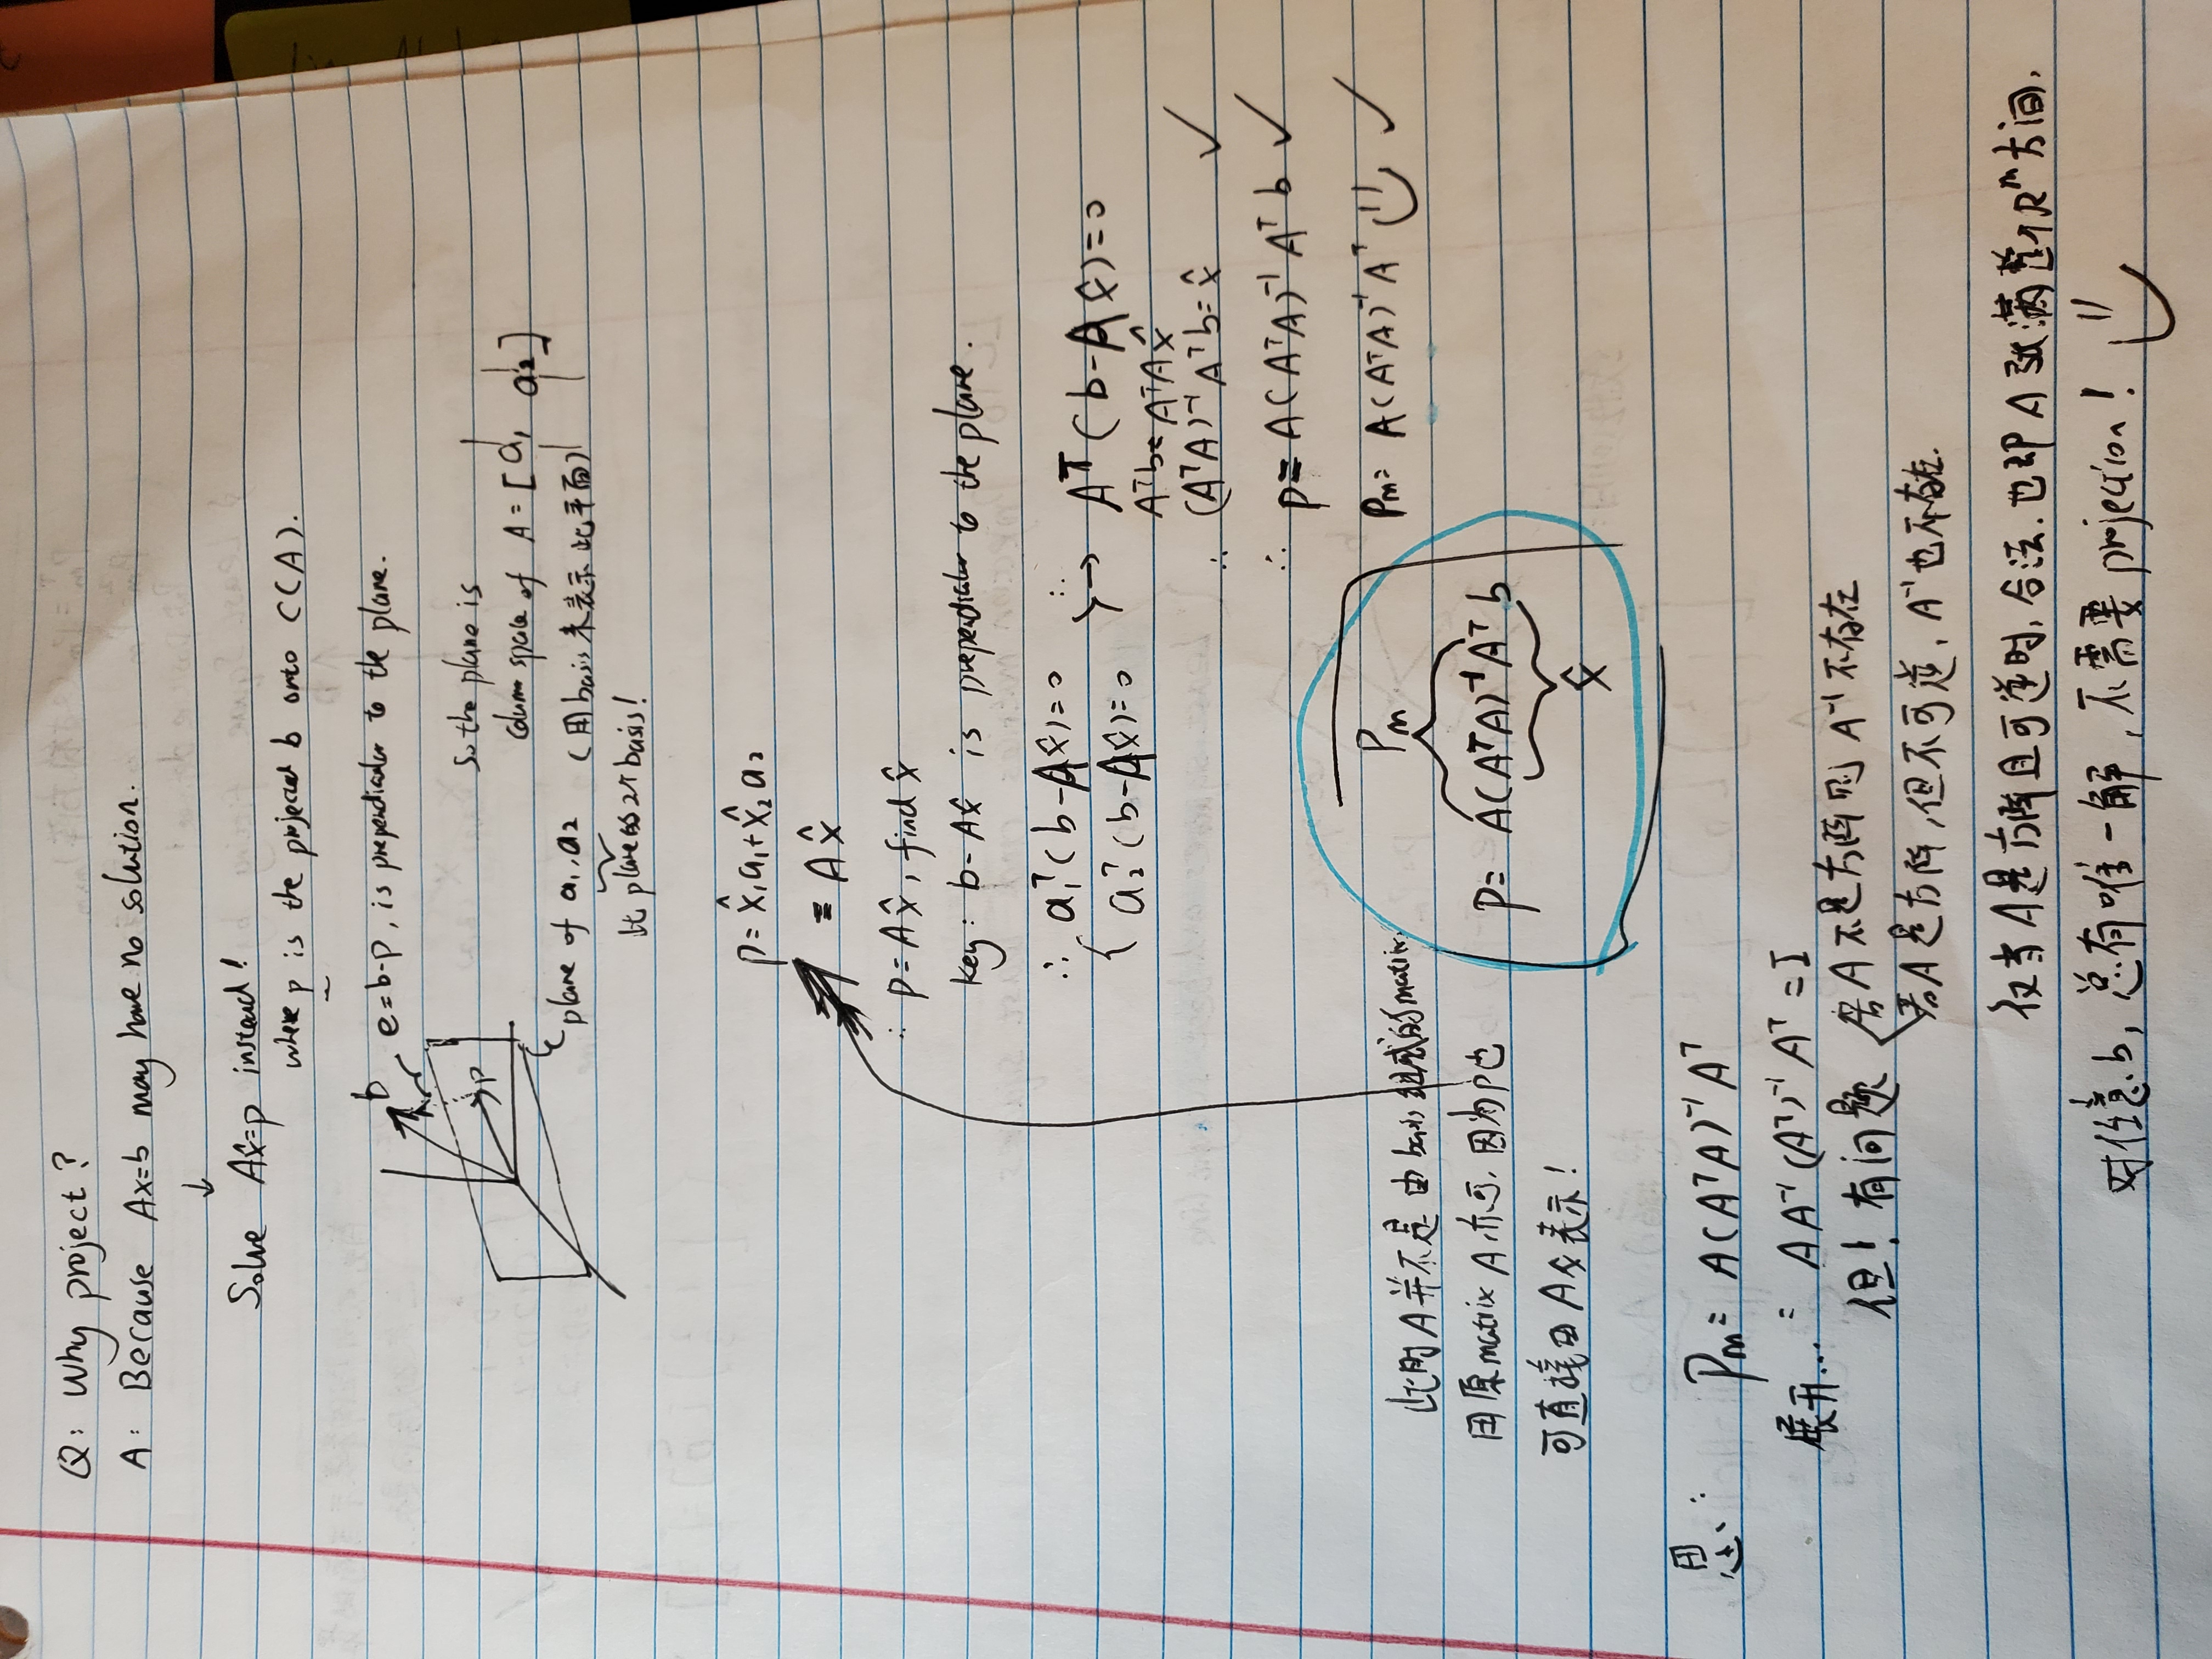 Q: Why project?
A: Because Ax=b may have no solution.
↓
Solve Ax̂=p instead!
where p is the projected b onto C(A).
b
e=b-p, is prependicular to the plane.
p
So the plane is
column space of A=[a₁ a₂]
plane of a₁, a₂
(用basis来表示此平面)
此plane的2个basis!
p= x̂₁a₁+x̂₂a₂
= Ax̂
∴ p=Ax̂, find x̂
key: b-Ax̂ is prependicular to the plane.
∴ a₁ᵀ(b-Ax̂)=0
a₂ᵀ(b-Ax̂)=0
∴ → Aᵀ(b-Ax̂)=0
Aᵀb=AᵀAx̂
∴ (AᵀA)⁻¹Aᵀb=x̂ ✓
∴ p= A(AᵀA)⁻¹Aᵀb ✓
Pm= A(AᵀA)⁻¹Aᵀ ✓
此时A并不是由basis组成的matrix.
用原matrix A亦可, 因为p也
可直接由Ax̂表示!
Pm
p= A(AᵀA)⁻¹Aᵀb
x̂
思: Pm= A(AᵀA)⁻¹Aᵀ
展开... = AA⁻¹(Aᵀ)⁻¹Aᵀ=I
但! 有问题
若A不是方阵则A⁻¹不存在
若A是方阵, 但不可逆, A⁻¹也不存在.
仅当A是方阵且可逆时, 合法. 也即A张满整个Rᵐ方间,
对任意b, 总有唯一解, 不需要projection!